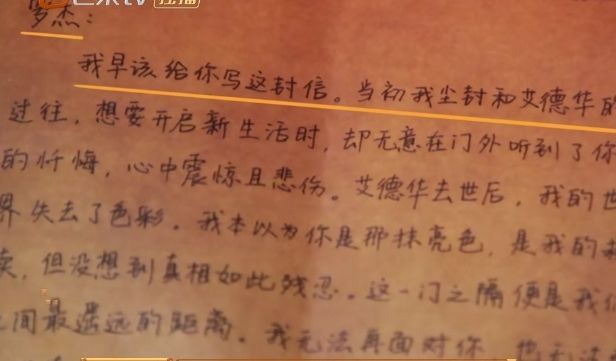 芒果TV 独播
罗杰：
我早该给你写这封信。当初我尘封和艾德华的
过往，想要开启新生活时，却无意在门外听到了你
的忏悔，心中震惊且悲伤。艾德华去世后，我的世
界失去了色彩。我本以为你是那抹亮色，是我的救
赎，但没想到真相如此残忍。这一门之隔便是我们
之间最遥远的距离。我无法再面对你